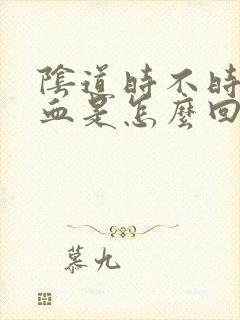 陰道時不時
血是怎麼回
慕九